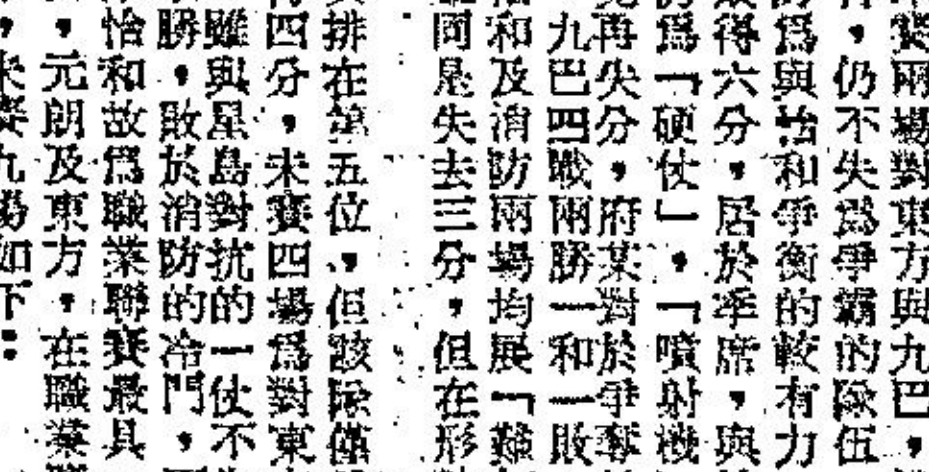 賽兩場對東方與九巴，
仍不失爲爭霸的隊伍
爲與怡和爭衡的較有力
得六分，居於季席，與
爲「硬仗」。「噴射機
再失分，府某對於爭奪
九巴四戰兩勝一和一敗
和及消防兩場均展「雞
同是失去三分，但在形
排在第五位，但該隊僅
四分，未賽四場爲對東
雖與星島對抗的一仗不
勝，敗於消防的冷門，
恰和故爲職業聯賽最具
，元朗及東方，在職業
，未賽九場如下：